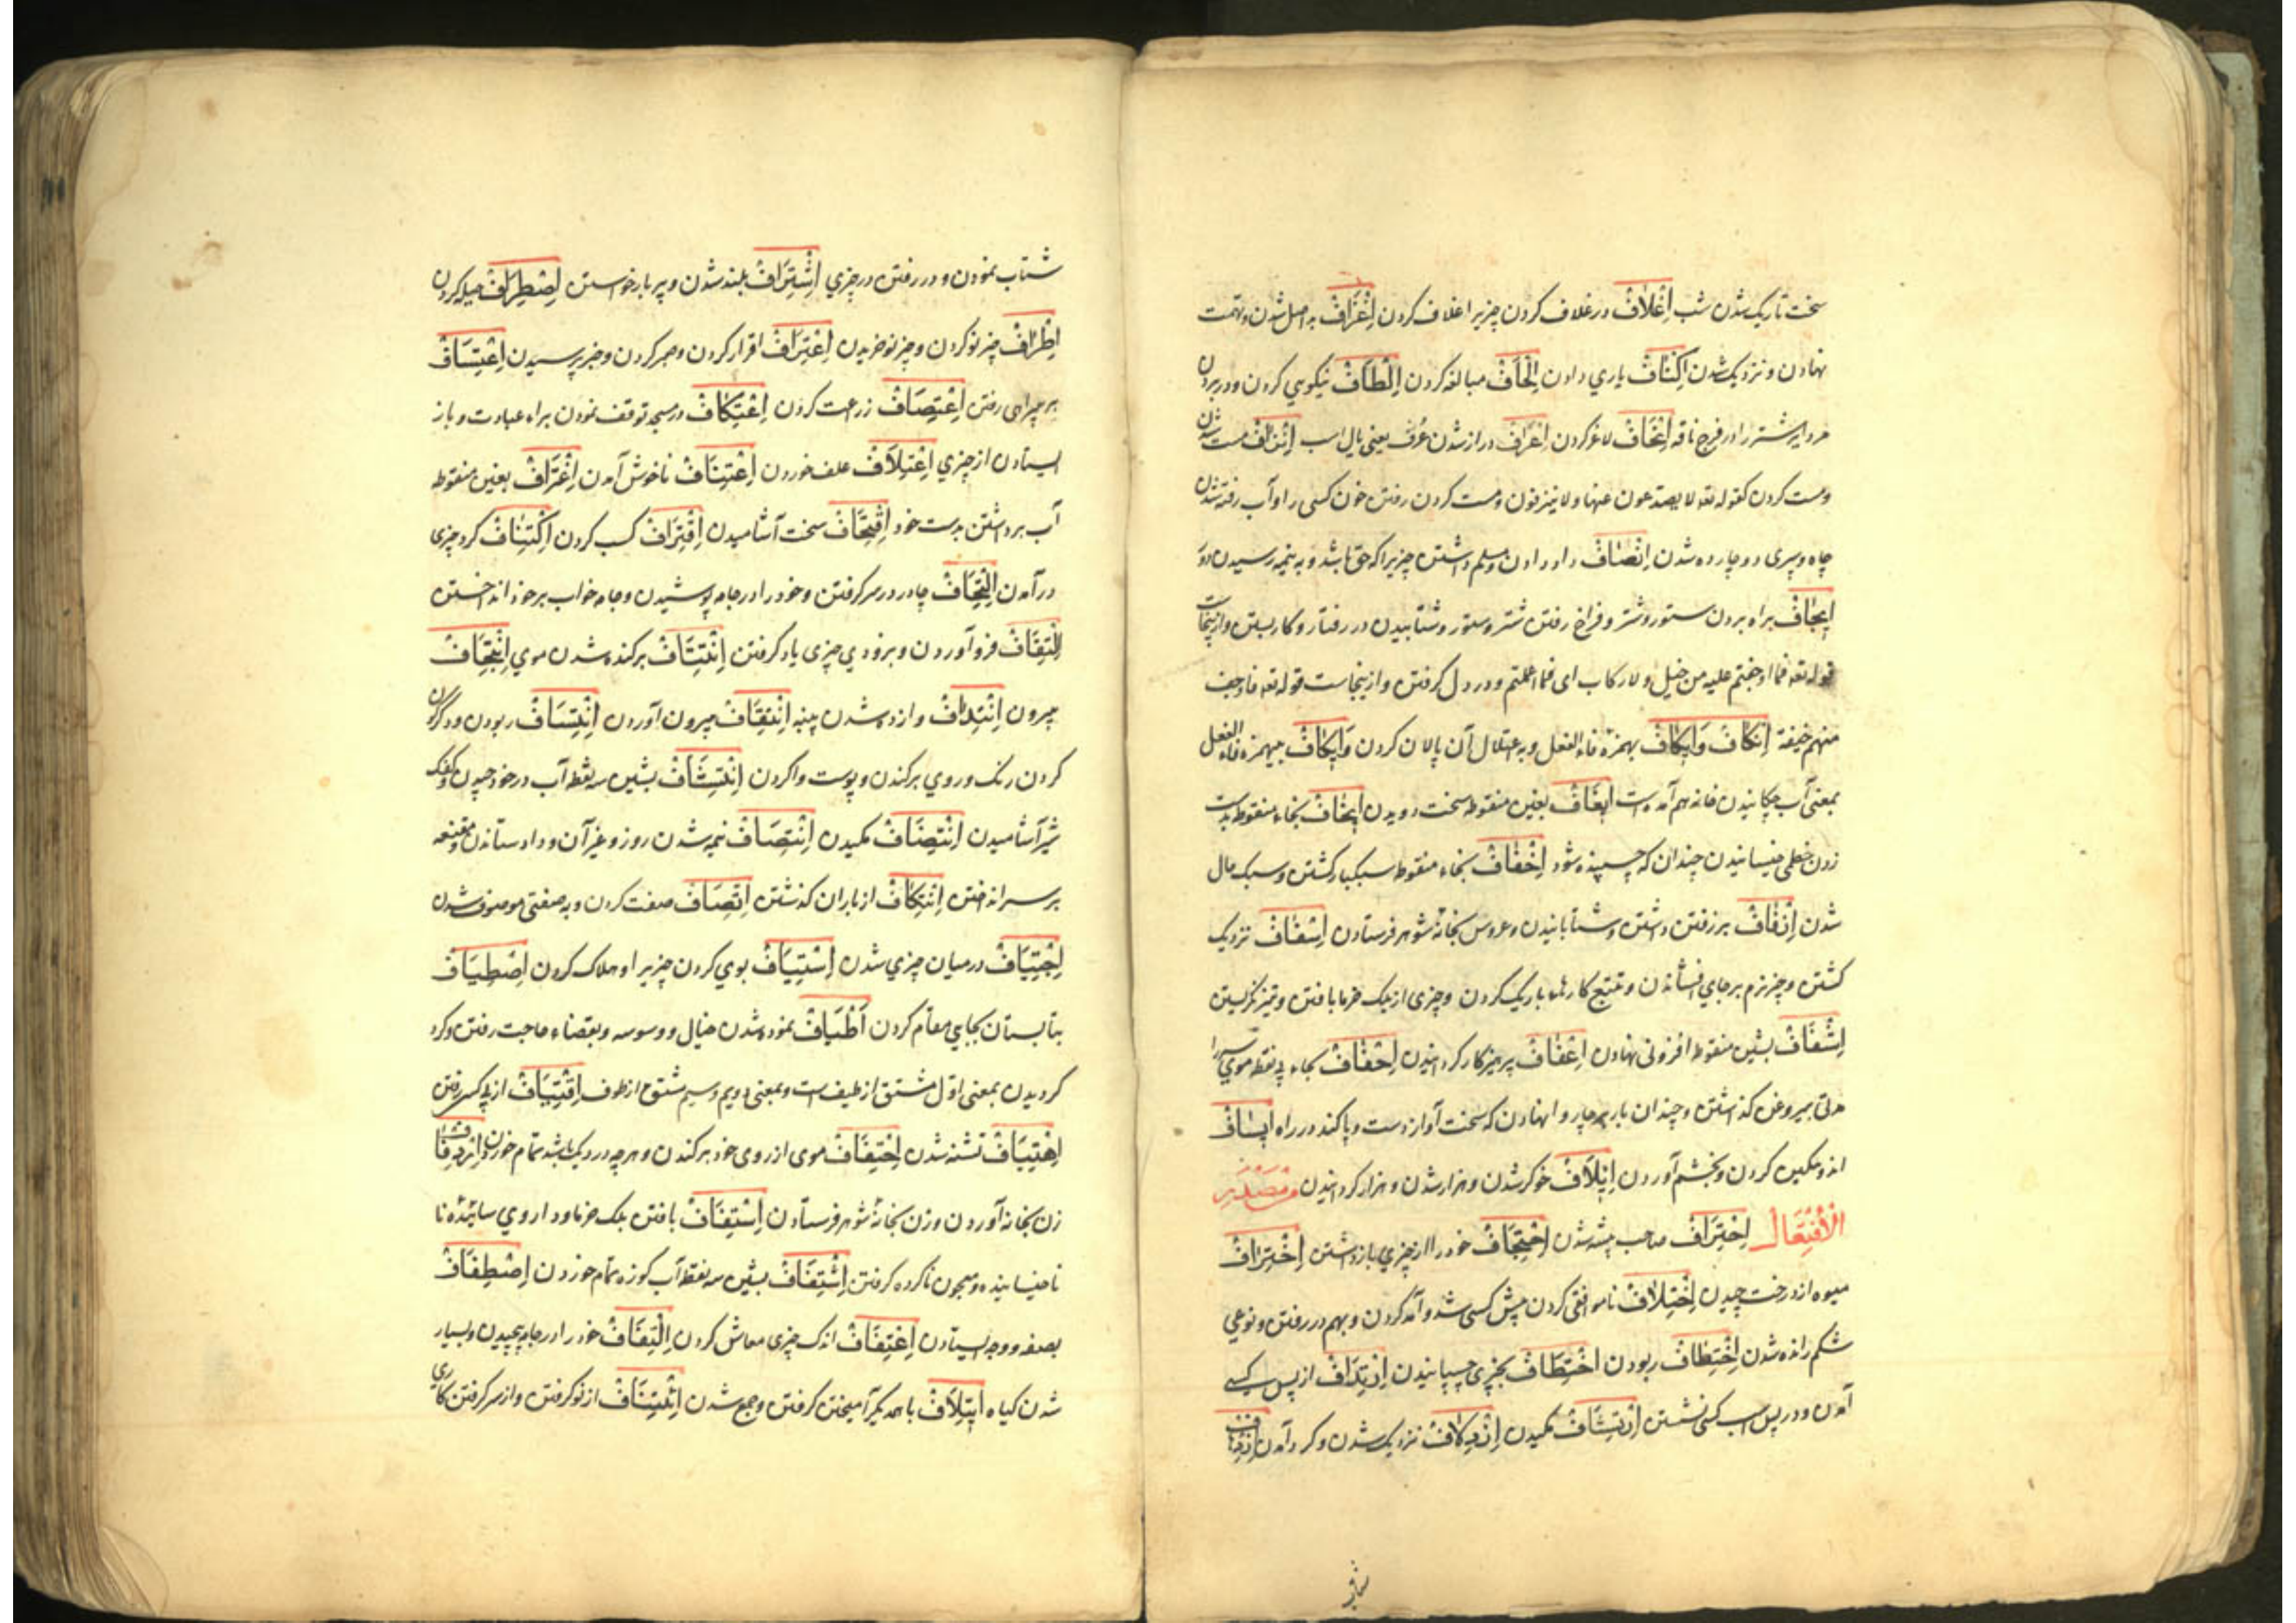 سخت تاریک شدن شب اِغْلَافْ در غلاف کردن چیزیرا غلاف کردن اِقْرَافْ بد اصل شدن و تهمت
نهادن و نزدیک شدن اِکْنَافْ یاری دادن اِلْحَافْ مبالغه کردن اِلْطَافْ نیکویی کردن و در بردن
مر دابر شتر را در فرج ناقه اِنْحَافْ لاغر کردن اِعْرَافْ دراز شدن عُرف یعنی یال اسب اِنْزَافْ مست شدن
و مست کردن کقوله تعه لا یصدعون عنها ولا ینزفون و مست کردن رفتن خون کسی را و آب رفته شدن
چاه و سپری اِنْصَافْ داد دادن و مسلم داشتن چیزیرا که حق باشد و به نیمه رسیدن روز
اِیجَافْ براه بردن ستور و شتر و فراخ رفتن شتر و ستور و شتابیدن در رفتار و کار بستن و ازینجاست
قوله تعه فما اوجفتم علیه من خیل ولا رکاب ای فما اعملتم و در دل گرفتن و ازینجاست قوله تعه فاوجف
منهم خیفة اِئْکَافْ وَاِیکَافْ بهمزهٔ فاء الفعل وبه اعتلال آن پالان کردن وَاِیکَافْ بیهمزه فاء الفعل
بمعنی آب چکانیدن خانه هم آمده است اِیغَافْ بغین منقوطه سخت دویدن اِیخَافْ بخاء منقوطه بدست
زدن خطمی خیسانیدن چندان که چسپنده شود اِخْفَافْ بخاء منقوطه سبکبار گشتن و سبک مال
شدن اِزْفَافْ بر رفتن داشتن و شتابانیدن و عروس بخانهٔ شوهر فرستادن اِسْفَافْ نزدیک
گشتن و چیز نرم بر جای افشاندن و تتبع کارهاء باریک کردن و چیزی از برگ خرما بافتن و تیز نگریستن
اِشْفَافْ بشین منقوطه افزونی نهادن اِعْفَافْ پرهیزکار گردانیدن اِحْفَافْ بحاء بی نقطه موی سر را
مدتی بیروغن گذاشتن و چندان بار بر چاروا نهادن که سخت آواز دست و پا کند در راه اِیسَافْ
اندوهگین کردن و بخشم آوردن اِیلَافْ خوگر شدن و هزار شدن و هزار گردانیدن مَصْدَر
اَلْاِفْتِعَالْ اِحْتِرَافْ صاحب پیشه شدن اِحْتِجَافْ خود را از چیزی بازداشتن اِخْتِرَافْ
میوه از درخت چیدن اِخْتِلَافْ ناموافقی کردن پیش کسی شد و آمد کردن و بهم در رفتن و نوعی
شکم رانده شدن اِخْتِطَافْ ربودن اِخْتِطَافْ بچیزی چسپانیدن اِرْتِدَافْ از پس کسی
آمدن و در پس اسب کسی نشستن اِرْتِشَافْ مکیدن اِزْدِلَافْ نزدیک شدن و گرد آمدن اِزْدِهَافْ
شتاب نمودن و در رفتن در چیزی اِشْتِرَافْ بلند شدن و پر باز خواستن اِصْطِرَافْ حیله کردن
اِطِّرَافْ چیز نو کردن و چیز نو خریدن اِعْتِرَافْ اقرار کردن و صبر کردن و خبر پرسیدن اِعْتِسَافْ
بر بیراهی رفتن اِعْتِصَافْ زرعت کردن اِعْتِکَافْ در مسجد توقف نمودن براء عبادت و باز
ایستادن از چیزی اِعْتِلَافْ علف خوردن اِعْتِنَافْ ناخوش آمدن اِغْتِرَافْ بغین منقوطه
آب برداشتن بدست خود اِقْتِحَافْ سخت آشامیدن اِقْتِرَافْ کسب کردن اِکْتِنَافْ گرد چیزی
درآمدن اِلْتِحَافْ چادر در سر گرفتن و خود را در جامه پوشیدن و جامه خواب بر خود انداختن
اِلْتِقَافْ فرو آوردن و بزودی چیزی یاد گرفتن اِنْتِتَافْ برکنده شدن موی اِنْتِجَافْ
بیرون اِنْتِدَافْ وا زده شدن پنبه اِنْتِقَافْ بیرون آوردن اِنْتِسَافْ ربودن و دگرگون
کردن رنگ و روی برکندن و پوست وا کردن اِنْتِشَافْ بشین سه نقطه آب در خود چیدن و کفک
شیر آشامیدن اِنْتِضَافْ مکیدن اِنْتِصَافْ نیمه شدن روز و غیر آن و داد ستاندن و مقنعه
بر سر انداختن اِنْتِکَافْ از باران گذشتن اِتِّصَافْ صفت کردن و به صفتی موصوف شدن
اِجْتِیَافْ در میان چیزی شدن اِسْتِیَافْ بوی کردن چیزیرا و هلاک کردن اِصْطِیَافْ
بتابستان بجایی مقام کردن اَطْیَافْ نموده شدن خیال و وسوسه و بقضاء حاجت رفتن و گرد
گردیدن بمعنی اوّل مشتق از طیف است و بمعنی دویم و سیم مشتق از طوف اِقْتِیَافْ از پی کسی رفتن
اِهْتِیَافْ تشنه شدن اِحْتِفَافْ موی از روی خود برکندن و هر چه در دیک باشد تمام خوردن اِزْدِفَافْ
زن بخانه آوردن و زن بخانهٔ شوهر فرستادن اِسْتِفَافْ بافتن برگ خرما و داروی سائیده نا
ناخیسانیده و معجون ناکرده گرفتن اِشْتِفَافْ بشین سه نقطه آب کوزه تمام خوردن اِصْطِفَافْ
بصف و وجه ایستادن اِغْتِفَافْ اندک چیزی معاش کردن اِلْتِفَافْ خود را در جامه پیچیدن و بسیار
شدن گیاه اِیتِلَافْ با همدیگر آمیختن گرفتن و جمع شدن اِئْتِنَافْ از نو گرفتن و از سر گرفتن کاری